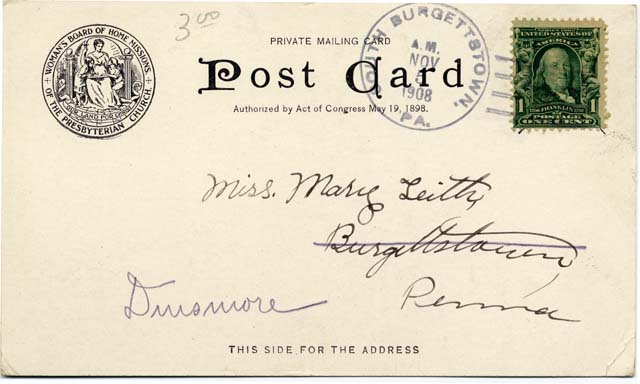 3.00
WOMAN'S BOARD OF HOME MISSIONS
OF THE PRESBYTERIAN CHURCH.
PRIVATE MAILING CARD
Post Card
Authorized by Act of Congress May 19, 1898.
SOUTH BURGETTSTOWN,
A.M.
NOV
5
1908
PA.
UNITED STATES OF
AMERICA
1 FRANKLIN 1
POSTAGE
ONE CENT
Miss. Mary Leith,
Burgettstown,
Dinsmore
Penna
THIS SIDE FOR THE ADDRESS